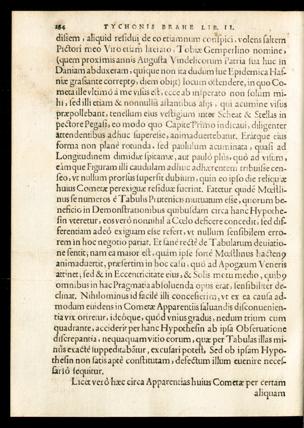 284 TYCHONIS BRAHE LIB. II.
diſiem, aliquid reſidui de eo etiamnum conſpici, volens ſaltem
Pictori meo Viro etiam literato, Tobiæ Gemperlino nomine,
(quem proximis annis Auguſta Vindelicorum Patria ſua huc in
Daniam abduxeram, quique non ita dudum hic Epidemica Haf-
niæ graſſante correptꝰ, diem ſuum obijt) locum oſtendere, in quo Co-
meta ille vltimò à me viſus eſt, ecce ab inſperato non ſolùm mi-
hi, ſed illi etiam & nonnullis aſtantibus alijs, qui acumine viſus
præpollebant, tenellum eius veſtigium inter Scheat & Stellas in
pectore Pegaſi, eo modo quo Capite Primo indicaui, diligenter
attendentibus adhuc ſupereſſe, animaduertebatur. Eratque eius
forma non planè rotunda, ſed paululum acuminata, quaſi ad
Longitudinem dimidiæ ſpitamæ, aut pauló plùs, quò ad viſum,
eamque Figuram illi caudulam adhuc adhærentem tribuiſſe cen-
ſeo, vt nullum prorſus ſuperſit dubium, quin eo ipſo die reliquiæ
huius Cometæ perexiguæ reſiduæ fuerint. Fatetur quidē Mœſtli-
nus ſe numeros è Tabulis Prutenicis mutuatum eſſe, quorum be-
neficio in Demonſtrationibus quibuſdam circa hanc Hypothe-
ſin vteretur, eos verò nonnihil a Cœlo deficere concedit, ſed dif-
ferentiam adeò exiguam eſſe refert, vt nullum ſenſibilem erro-
rem in hoc negotio pariat. Et ſanè rectè de Tabularum deuiatio-
ne ſentit, nam ea maior eſt, quàm ipſe fortè Mœſtlinus hactenꝰ
animaduertit, præſertim in hoc caſu, quò ad Apogæum Veneris
attinet, ſed & in Eccentricitate eius, & Solis motu medio, quibꝰ
omnibus in hac Pragmatia abſoluenda opus erat, ſenſibiliter de-
clinat. Nihilominus id facilè illi conceſſerim, vt ex ea cauſa ad-
modum euidens in Cometæ Apparentijs ſaluandis diſconuenien-
tia vix oriretur, ideóque, quód vnius gradus, nedum trium cum
quadrante, acciderit per hanc Hypotheſin ab ipſa Obſeruatione
diſcrepantia, nequaquam vitio eorum, quæ per Tabulas illas mi-
nùs exactè ſuppeditabātur, excuſari poteſt. Sed ob ipſam Hypo-
theſin non ſatis aptè conſtitutam, defectum illum euenire neceſ-
ſariò ſequitur.
Licet verò hæc circa Apparentias huius Cometæ per certam
aliquam